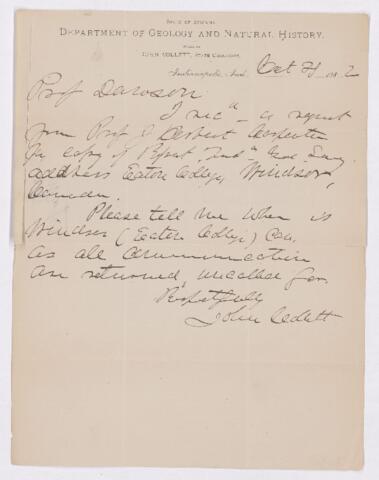 STATE OF INDIANA.
DEPARTMENT OF GEOLOGY AND NATURAL HISTORY.
JOHN COLLETT, STATE GEOLOGIST.
Indianapolis, Ind., Oct 21
Prof Dawson
I rec^d a request
from Prof P Herbert Carpenter
for copy of Report Ind^a Geol Surv
address Eaton College, Windsor,
Canada.
Please tell me where is
Windsor (Eaton College) Can.
as all communication
are returned, uncalled for.
Respectfully
John Collett